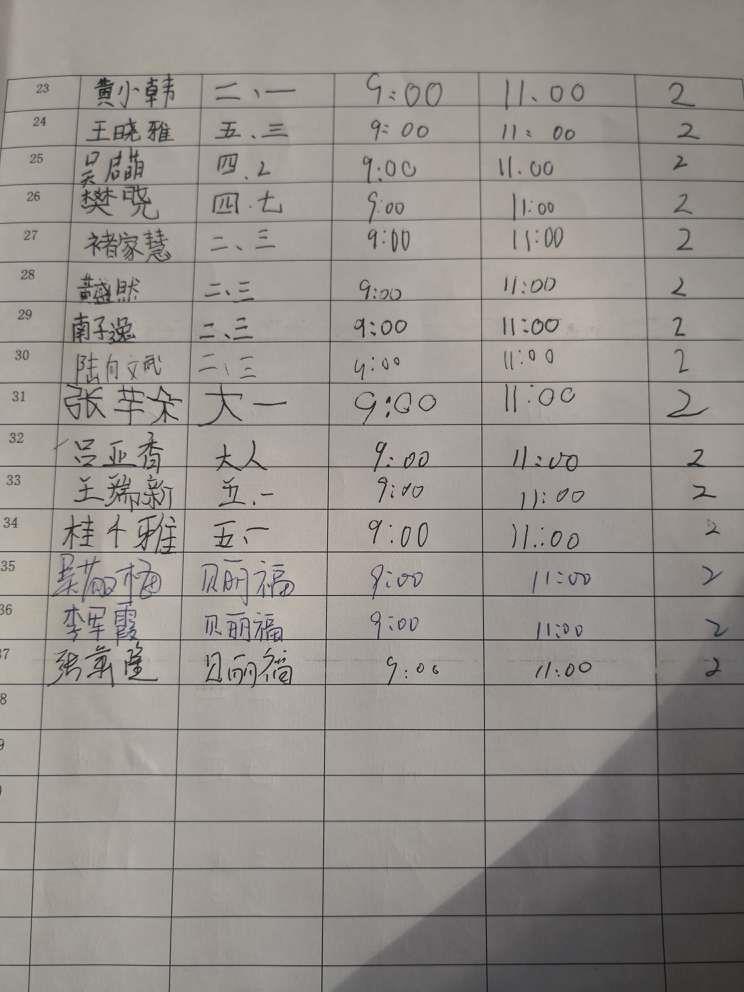 23 黄小韩 二、一 9:00 11.00 2
24 王晓雅 五、三 9:00 11:00 2
25 吴君萌 四.2 9:00 11.00 2
26 樊晓 四.七 9:00 11:00 2
27 褚家慧 二、三 9:00 11:00 2
28 黄盛然 二、三 9:00 11:00 2
29 南子逸 二、三 9:00 11:00 2
30 陆向文武 二、三 9:00 11:00 2
31 张芊朵 大一 9:00 11:00 2
32 吕亚香 大人 9:00 11:00 2
33 王瑞新 五.一 9:00 11:00 2
34 桂千雅 五.一 9:00 11:00 2
35 贝丽福 9:00 11:00 2
36 李军霞 贝丽福 9:00 11:00 2
37 贝丽福 9:00 11:00 2
8
9